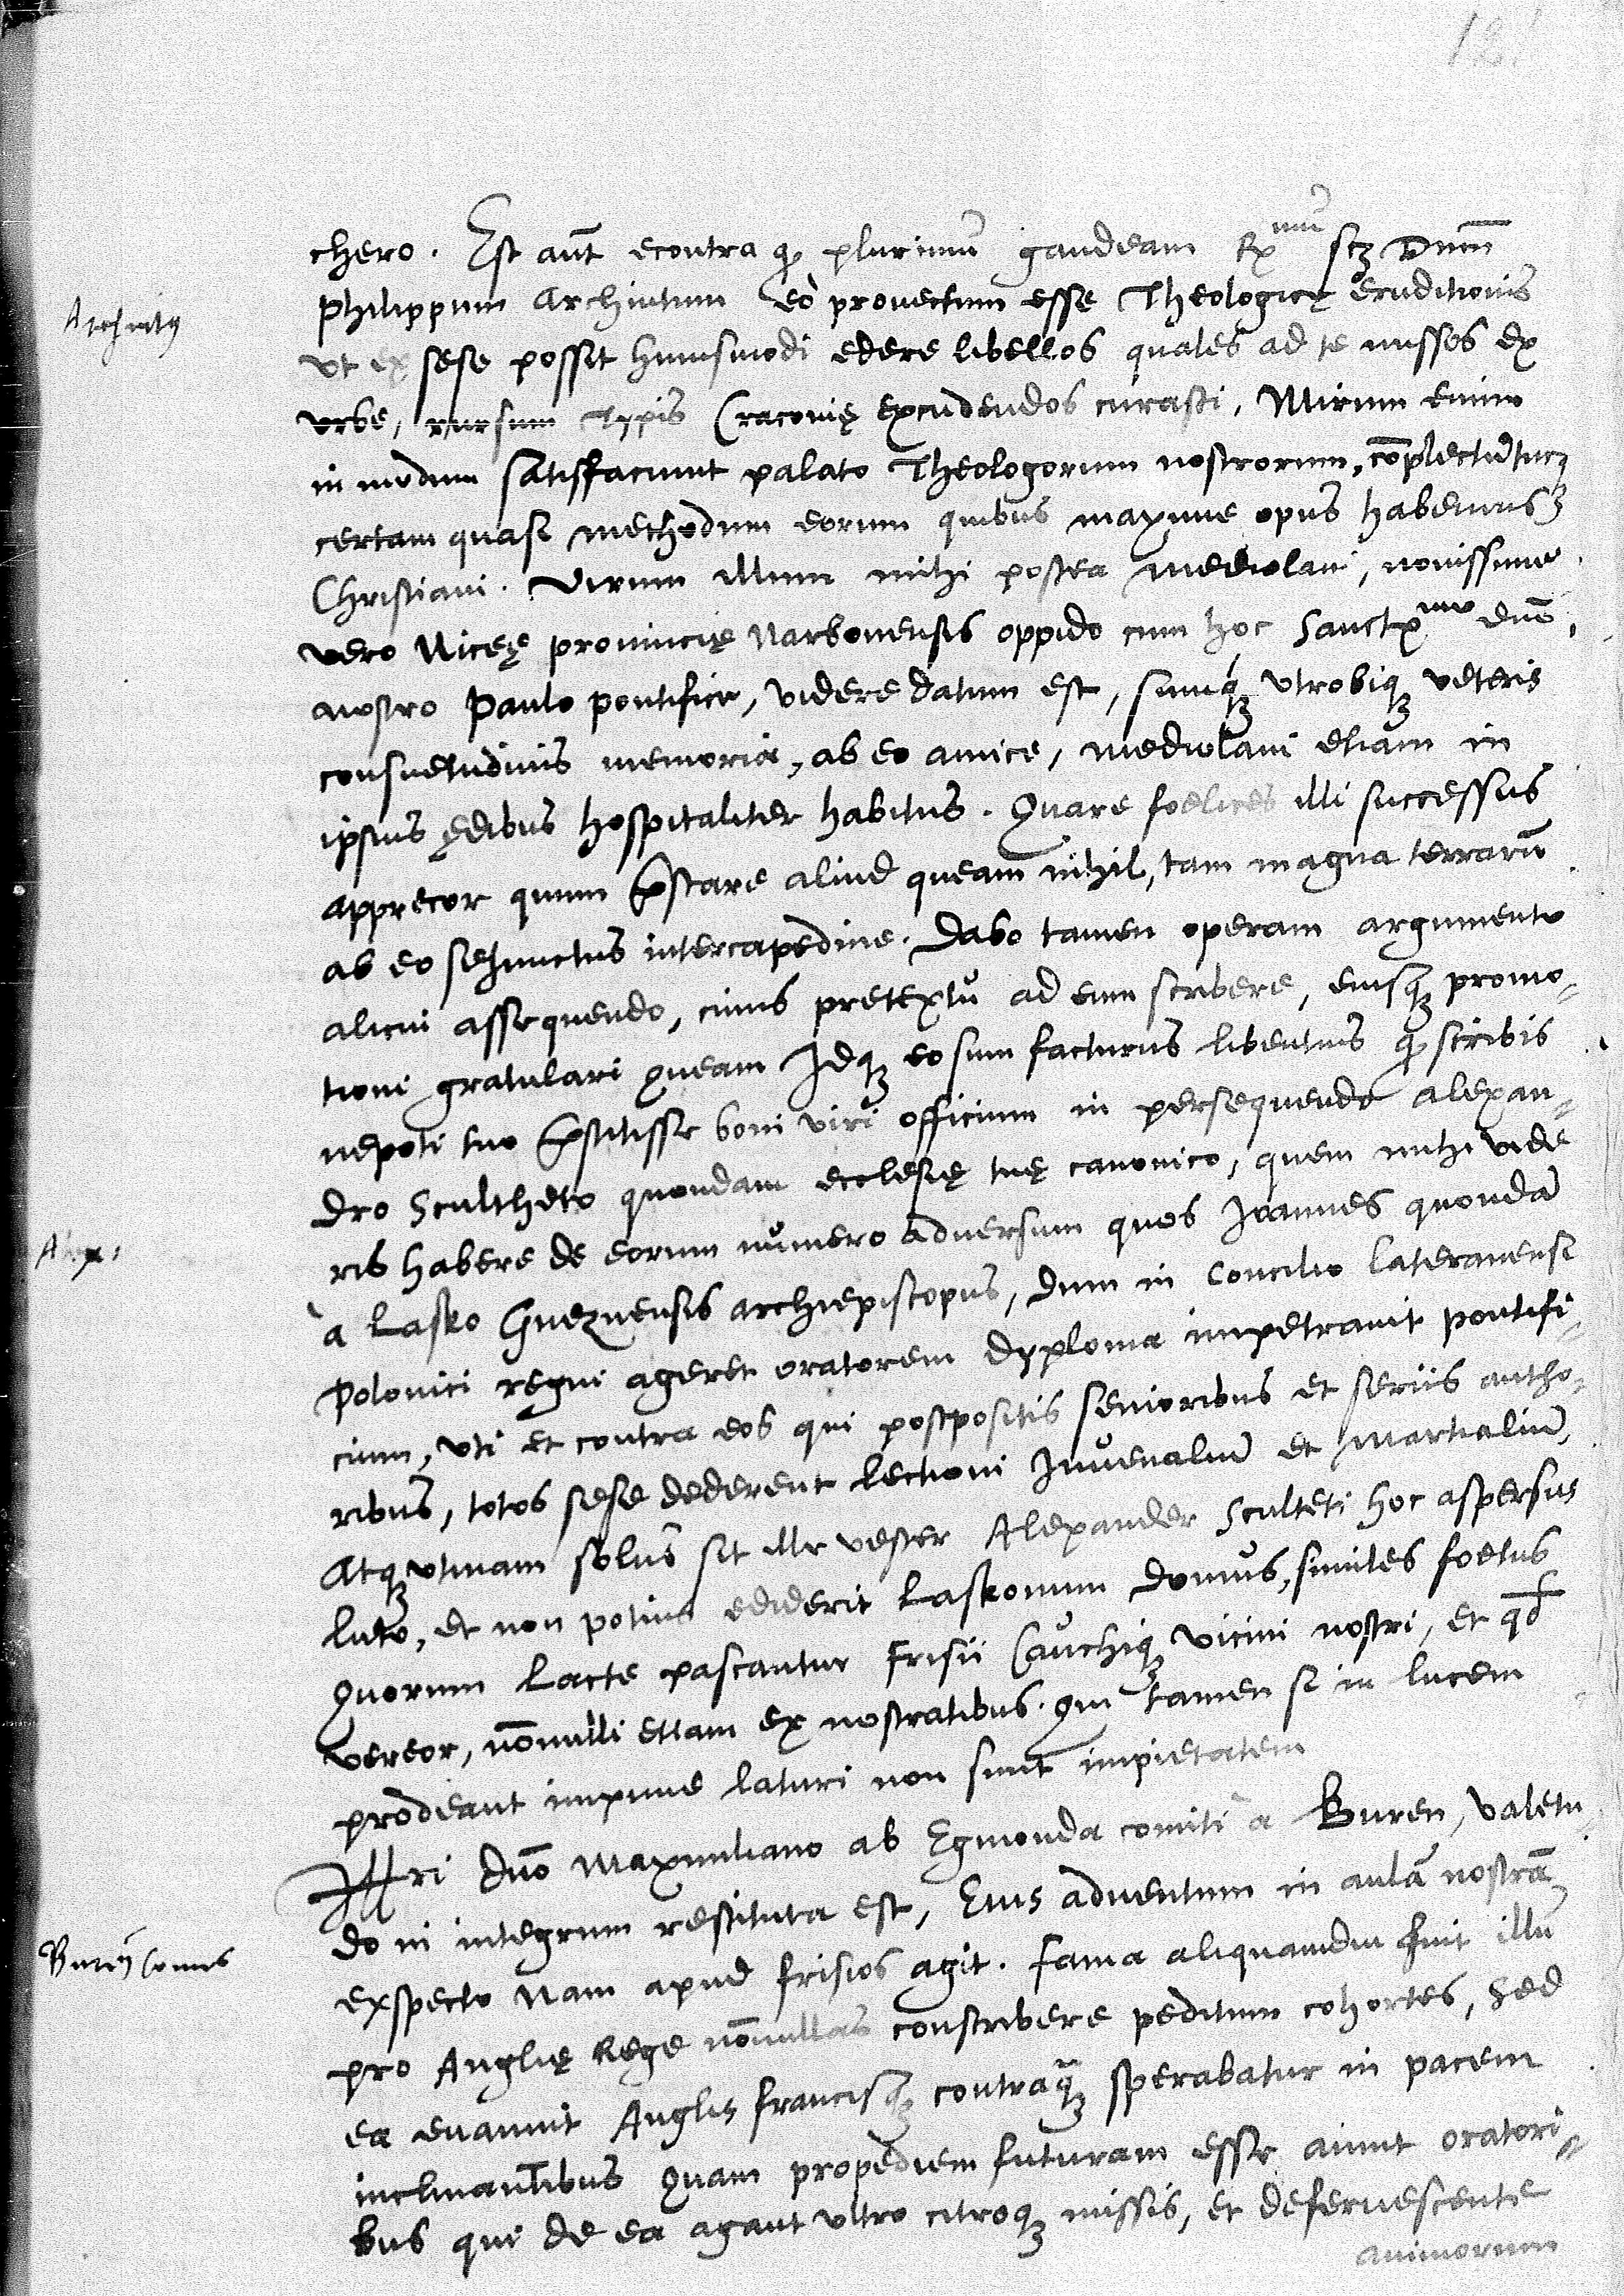 chero. Est aūt econtra q̄ plurimū gaudeam Rx^mū scz Dnm̄
Archintus
Philippum Archintum eò prouectum esse Theologicę eruditionis
vt ex sese possit huiusmodi edere libellos quales ad te missos ex
vrbe, rursum Typis Cracouię excudendos curasti, Mirum enim
in modum satisfaciunt palato Theologorum nostrorum, cōplectūturqȝ
certam quasi methodum eorum quibus maxime opus habemus
Christiani. Virum illum mihi postea Mediolani, nouissime
vero Niceę prouincię Narbonensis oppido cum hoc Sanctx^mo dnō
nostro Paulo pontifice, videre datum est, sumqȝ vtrobiqȝ veteris
consuetudinis memoria, ab eo amice, mediolani etiam in
ipsius ędibus hospitaliter habitus. Quare foelices illi successus
apprecor quum p̄stare aliud queam nihil, tam magna terrarū
ab eo seiunctus intercapedine. Dabo tamen operam argumento
alicui assequendo, cuius pretextu ad eum scribere, eiusqȝ promo-
tioni gratulari queam Idqȝ eo sum facturus libentius q̄ scribis
nepoti tuo p̄stitisse boni viri officium in persequendo alexan-
dro Scultheto quondam ecclesię tuę canonico, quem mihi vide
Alex.
ris habere de eorum numero aduersum quos Joannes quondā
à Lasko Gneznensis archiepiscopus, dum in Concilio lateranensi
Polonici regni ageret oratorem dyploma impetrauit pontifi-
cium, vti et contra eos qui postpositis senioribus et seriis autho-
ribus, totos sese dederent lectioni Juuenaliū et Martialiū,
Atqȝ vtinam solus sit ille vester Alexander Sculteti hoc aspersus
luto, et non potius ediderit laskonum domus, similes foetus
Quorum lacte pascantur Frisii Cauchiqȝ vicini nostri, et qd
vereor, nōnulli etiam ex nostratibus. qui tamen si in lucem
prodeant impune laturi non sunt impietatem
Illri dnō Maximiliano ab Egmonda comiti à Buren, valetu-
do in integrum restituta est, Eius aduentum in aulā nostrā
Buren Comes
exspecto Nam apud frisios agit. fama aliquamdiu fuit illū
pro Anglię Rege nōnullas conscribere peditum cohortes, sed
ea euanuit Anglis francisqȝ contraqȝ sperabatur in pacem
inclinantibus Quam propediem futuram esse aiunt oratori-
bus qui de ea agant vltro citroqȝ missis, et deferuescente
animorum